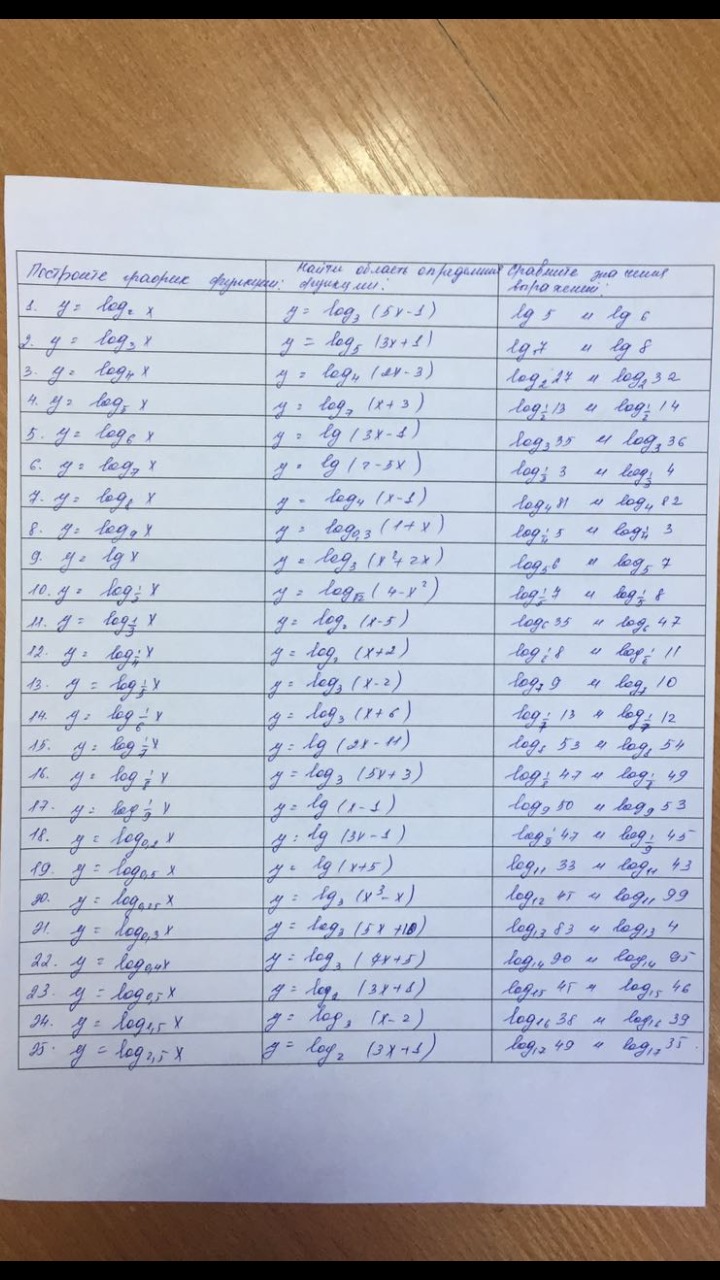 Постройте график функции: Найти область определения функции: Сравните значения выражений:
1. y = log₂ x y = log₃ (5x-1) lg 5 и lg 6
2. y = log₃ x y = log₅ (3x+1) lg 7 и lg 8
3. y = log₄ x y = log₄ (2x-3) log₂ 27 и log₂ 32
4. y = log₅ x y = log₇ (x+3) log½ 13 и log½ 14
5. y = log₆ x y = lg (3x-1) log₃ 35 и log₃ 36
6. y = log₇ x y = lg (2-5x) log⅓ 3 и log⅓ 4
7. y = log₈ x y = log₄ (x-1) log₄ 81 и log₄ 82
8. y = log₉ x y = log₀,₃ (1+x) log¼ 5 и log¼ 3
9. y = lg x y = log₃ (x²+2x) log₅ 6 и log₅ 7
10. y = x y = log√2 (4-x²) log⅕ 7 и log⅕ 8
11. y = log⅓ x y = (x-5) log₆ 35 и log₆ 47
12. y = log¼ x y = (x+2) log⅙ 8 и log⅙ 11
13. y = log⅕ x y = log₃ (x-2) log₇ 9 и log₇ 10
14. y = log⅙ x y = log₃ (x+6) log1/7 13 и log1/7 12
15. y = log1/7 x y = lg (2x-11) log₈ 53 и log₈ 54
16. y = log⅛ x y = log₃ (5x+3) log⅛ 47 и log⅛ 49
17. y = log1/9 x y = lg (x-1) log₉ 50 и log₉ 53
18. y = log₀,₂ x y = lg (3x-1) log1/9 47 и log1/9 45
19. y = log₀,₅ x y = lg (x+5) log₁₁ 33 и log₁₁ 43
20. y = x y = lg₃ (x³-x) log₁₂ 45 и log₁₁ 99
21. y = log₀,₃ x y = log₃ (5x+10) log₁₃ 83 и log₁₃ 4
22. y = log₀,₄ x y = log₃ (4x+5) log₁₄ 90 и log₁₄ 95
23. y = log₀,₅ x y = (3x+1) log₁₅ 45 и log₁₅ 46
24. y = log₁,₅ x y = log₃ (x-2) log₁₆ 38 и log₁₆ 39
25. y = log₂,₅ x y = log₂ (3x+1) log₁₇ 49 и log₁₇ 35.